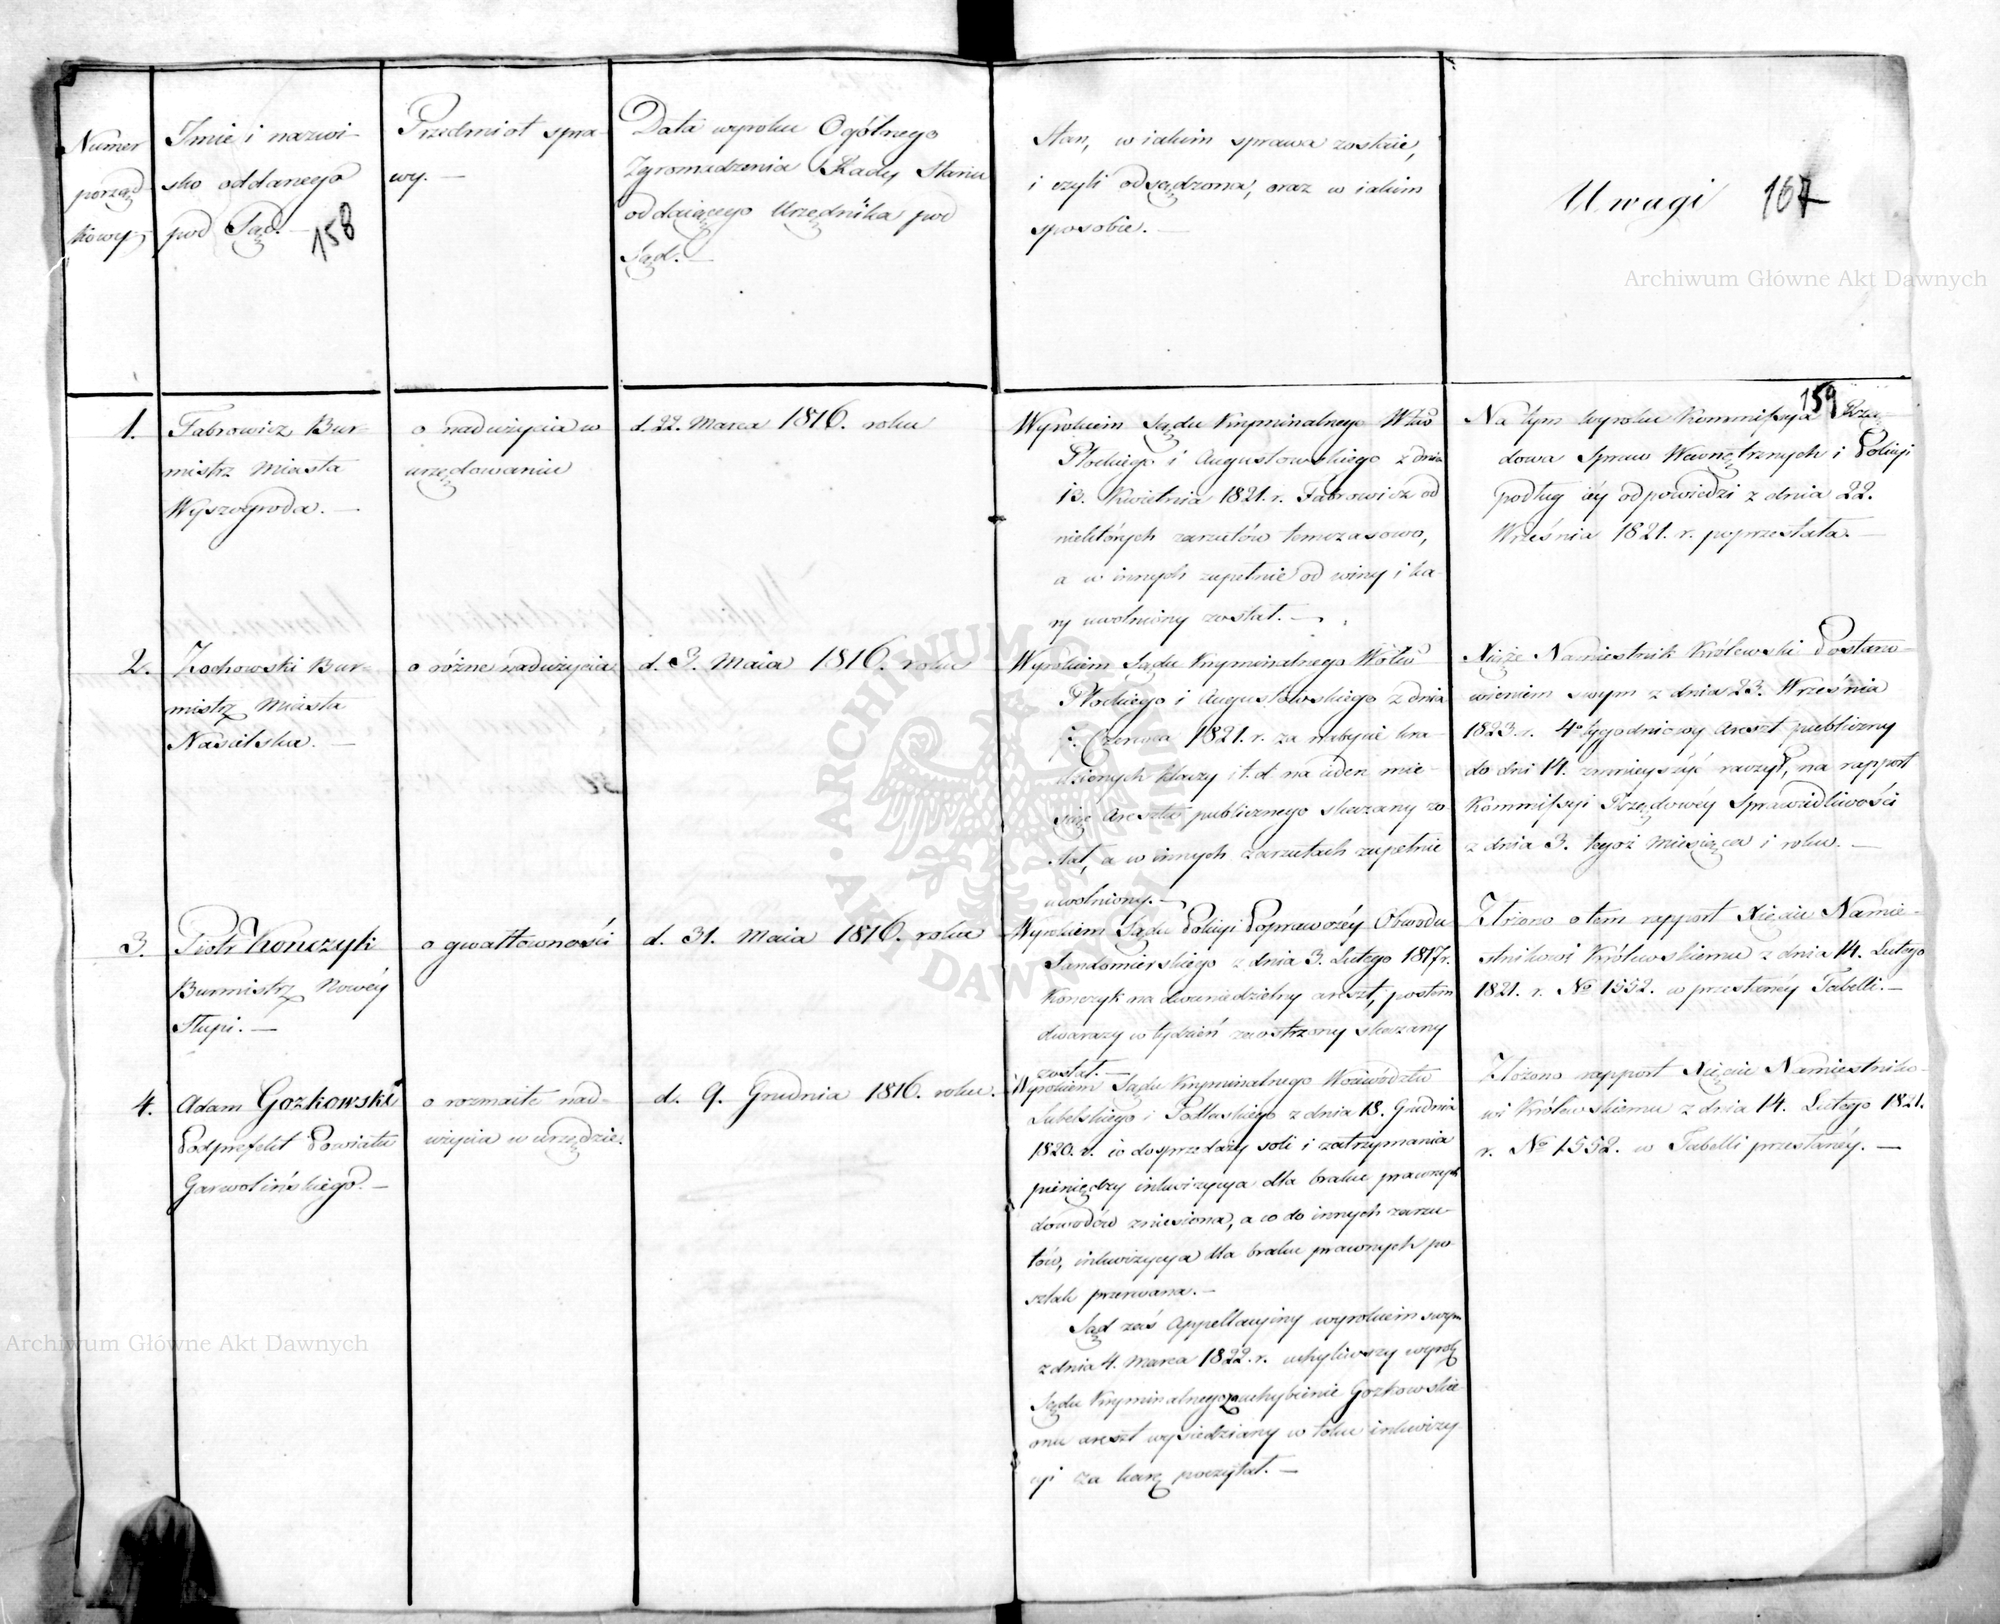 Numer
porząd-
kowy
Imie i nazwi-
sko oddanego
pod Sąd. —
158
Przedmiot spra-
wy. —
Data wyroku Ogólnego
Zgromadzenia Rady Stanu
oddaiącego Urzędnika pod
Sąd. —
Stan, w iakim sprawa zostaie,
i czyli odsądzona, oraz w iakim
sposobie. —
Uwagi
167
Archiwum Główne Akt Dawnych
159
1.
Fabrowicz Bur-
mistrz Miasta
Wyszogroda. —
o nadużycia w
urzędowaniu
d. 22. Marca 1816. roku
Wyrokiem Sądu Kryminalnego Wtwa
Płockiego i Augustowskiego z dnia
13. Kwietnia 1821. r. Fabrowicz od
niektórych zarzutów temczasowo,
a w innych zupełnie od winy i ka-
ry uwolniony został. —
Na tym wyroku Kommissya Rzą-
dowa Spraw Wewnętrznych i Policyi
podług iéy odpowiedzi z dnia 22.
Września 1821. r. poprzestała. —
2.
Żochowski Bur-
mistrz Miasta
Nasielska. —
o różne nadużycia
d. 3. Maia 1816. roku
Wyrokiem Sądu Kryminalnego Wotwa
Płockiego i Augustowskiego z dnia
Czerwca 1821. r. za nabycie kra-
dzionych klaczy i t. d. na ieden mie-
siąc Aresztu publicznego skazany zo-
stał, a w innych zarzutach zupełnie
uwolniony. —
Xiąże Namiestnik Królewski Postano-
wieniem swym z dnia 23. Września
1823. r. 4o tygodniowy Areszt publiczny
do dni 14. zmnieyszyć raczył, na rapport
Kommissyi Rządowéy Sprawiedliwości
z dnia 3. tegoż Miesiąca i roku. —
3.
Piotr Kończyk
Burmistrz Nowéy
Słupi. —
o gwałtowności
d. 31. Maia 1816. roku
Wyrokiem Sądu Policyi Poprawczéy Obwodu
Sandomierskiego z dnia 3. Lutego 1817 r.
Kończyk na dwuniedzielny areszt, postem
dwarazy w tydzień zaostrzony skazany
został. —
Złożono o tem rapport Xięciu Namie-
stnikowi Królewskiemu z dnia 14. Lutego
1821. r. No 1552. w przesłanéy Tabelli. —
4.
Adam Gozkowski
Podprefekt Powiatu
Garwolińskiego. —
o rozmaite nad-
użycia w urzędzie.
d. 9. Grudnia 1816. roku.
Wyrokiem Sądu Kryminalnego Woiewództw
Lubelskiego i Podlaskiego z dnia 18. Grudnia
1820. r. co do sprzedaży soli i zatrzymania
pieniędzy inkwizycya dla braku prawnych
dowodów zniesiona, a co do innych zarzu-
tów, inkwizycya dla braku prawnych po-
szlak przerwana. —
Sąd zaś Appellacyiny wyrokiem swym
z dnia 4. Marca 1822. r. uchyliwszy wyrok
Sądu Kryminalnego za uchybienie Gozkowskie-
mu areszt wysiedziany w toku inkwizy-
cyi za karę poczytał. —
Złożono rapport Xięciu Namiestniko-
wi Królewskiemu z dnia 14. Lutego 1821.
r. No 1552. w Tabelli przesłanéy. —
Archiwum Główne Akt Dawnych
ARCHIWUM GŁÓWNE AKT DAWNYCH